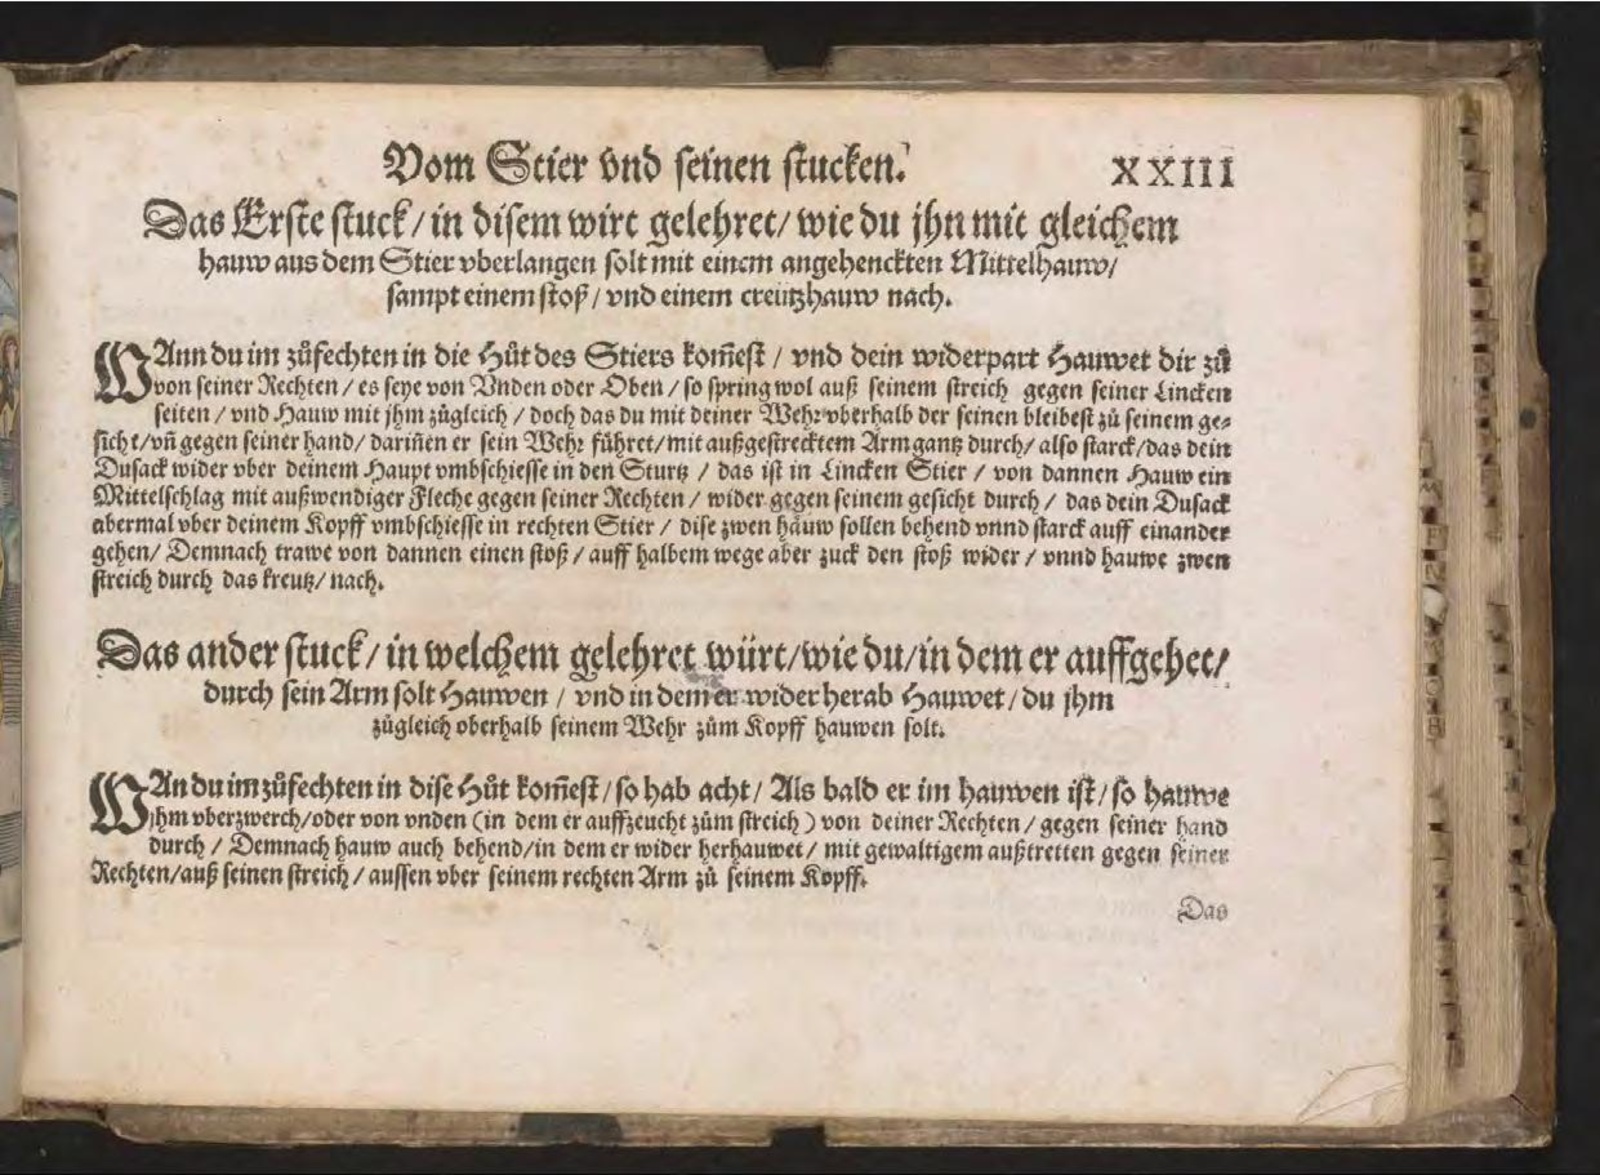 Vom Stier vnd seinen stucken.
XXIII
Das Erste stuck / in disem wirt gelehret / wie du jhn mit gleichem
hauw aus dem Stier vberlangen solt mit einem angehenckten Mittelhauw /
sampt einem stoß / vnd einem creützhauw nach.
WAnn du im zůfechten in die Hůt des Stiers kom̃est / vnd dein widerpart Hauwet dir zů
von seiner Rechten / es seye von Vnden oder Oben / so spring wol auß seinem streich gegen seiner Lincken
seiten / vnd Hauw mit jhm zůgleich / doch das du mit deiner Wehr vberhalb der seinen bleibest zů seinem ge-
sicht / vñ gegen seiner hand / dariñen er sein Wehr führet / mit außgestrecktem Arm gantz durch / also starck / das dein
Dusack wider vber deinem Haupt vmbschiesse in den Sturtz / das ist in Lincken Stier / von dannen Hauw ein
Mittelschlag mit außwendiger Fleche gegen seiner Rechten / wider gegen seinem gesicht durch / das dein Dusack
abermal vber deinem Kopff vmbschiesse in rechten Stier / dise zwen häuw sollen behend vnnd starck auff einander
gehen / Demnach trawe von dannen einen stoß / auff halbem wege aber zuck den stoß wider / vnnd hauwe zwen
streich durch das kreutz / nach.
Das ander stuck / in welchem gelehret würt / wie du / in dem er auffgehet /
durch sein Arm solt Hauwen / vnd in dem er wider herab Hauwet / du jhm
zůgleich oberhalb seinem Wehr zům Kopff hauwen solt.
WAn du im zůfechten in dise Hůt kom̃est / so hab acht / Als bald er im hauwen ist / so hauwe
jhm vberzwerch / oder von vnden (in dem er auffzeucht zům streich) von deiner Rechten / gegen seiner hand
durch / Demnach hauw auch behend / in dem er wider herhauwet / mit gewaltigem außtretten gegen seiner
Rechten / auß seinen streich / aussen vber seinem rechten Arm zů seinem Kopff.
Das